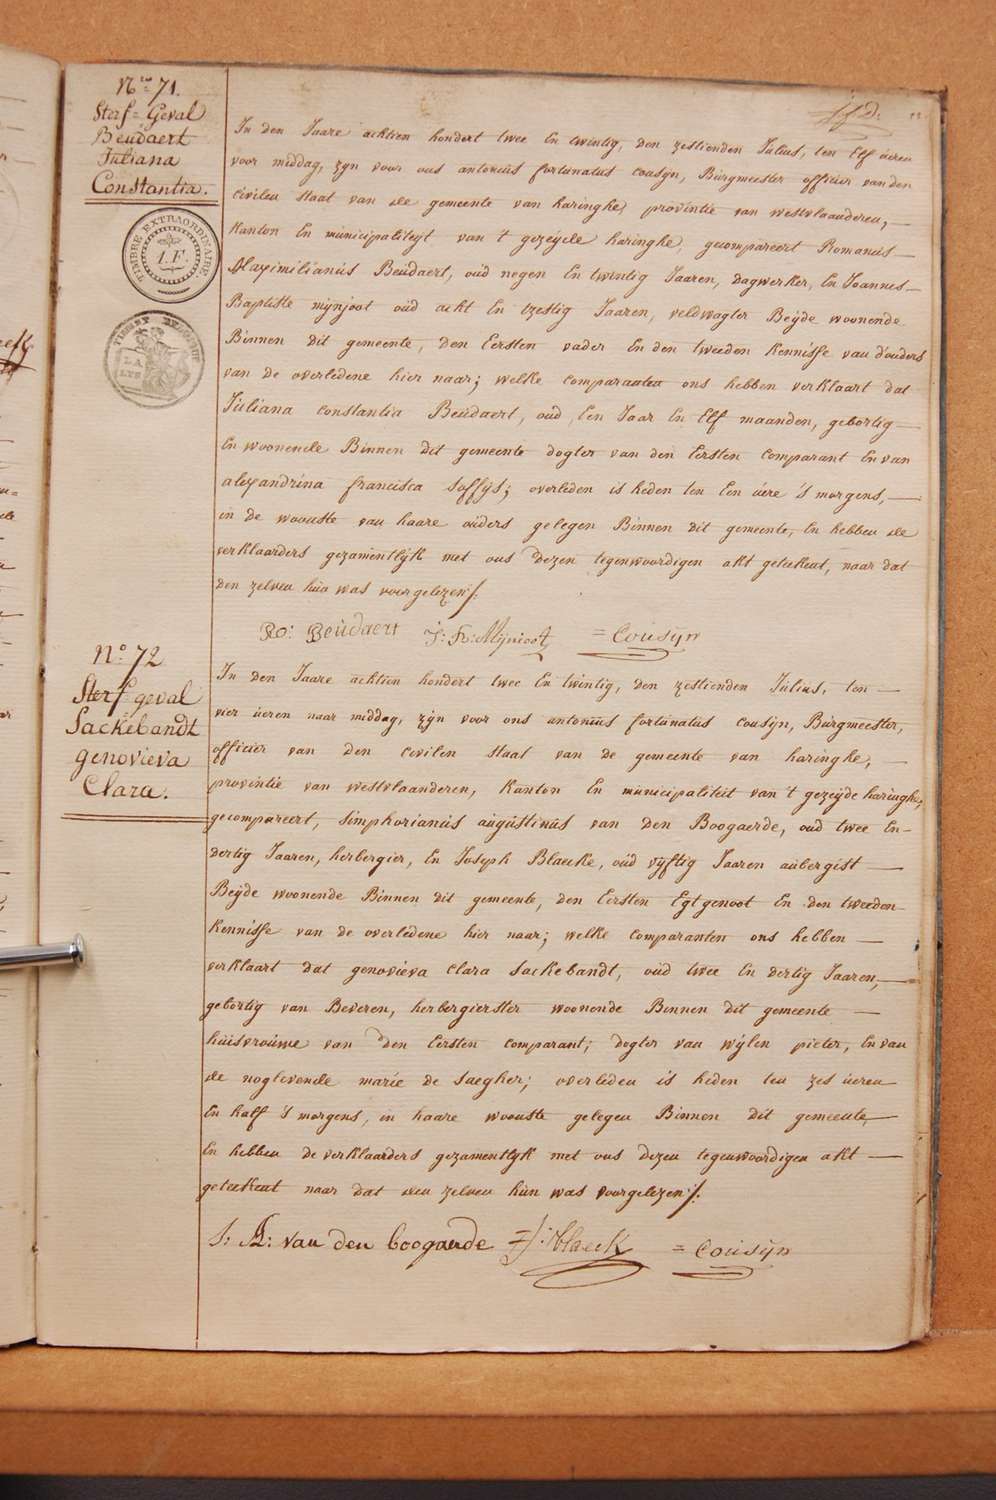 No 71.
Sterf=Geval
Beudaert
Juliana
Constantia.
TIMBRE EXTRAORDINAIRE.
1.F.
In den Jaare achtien hondert twee En twintig, den zestienden Julius, ten Elf úeren
voor middag, zyn voor ons antonius fortunatus cousyn, Burgmeester officier van den
civilen staat van de gemeente van haringhe, provintie van westvlaanderen, —
Kanton En municipaliteijt van 't gezeijde haringhe, gecompareert Romanus —
Maximilianus Beudaert, oud negen En twintig Jaaren, dagwerker, En Joannes —
Baptiste mijnjoot oud acht En tzestig Jaaren, veldwagter Beijde woonende
Binnen dit gemeente, den Eersten vader En den tweeden Kennisse van d'ouders
van de overledene hier naar; welke comparanten ons hebben verklaart dat
Juliana constantia Beudaert, oud Een Jaar En Elf maanden, gebortig —
En woonende Binnen dit gemeente dogter van den Eersten comparant En van
alexandrina francisca Soffijs; overleden is heden ten Een úere 's morgens, —
in de woonste van haare ouders gelegen Binnen dit gemeente, En hebben de
verklaarders gezamentlijk met ons dezen tegenwoordigen akt geteekent, naar dat
den zelven hun was voorgelezen/.
Ro: Beudaert J: B: Mijnioot = Cousijn
No. 72
Sterf geval
Sackebandt
genovieva
Clara.
In den Jaare achtien hondert twee En twintig, den zestienden Julius, ten —
vier úeren naar middag, zyn voor ons antonius fortunatus cousyn, Burgmeester,
officier van den civilen staat van de gemeente van haringhe, —
provintie van westvlaanderen, Kanton En municipaliteit van 't gezeijde haringhe,
gecompareert, simphorianus augustinus van den Boogaerde, oud twee En-
dertig Jaaren, herbergier, En Joseph Blaeke, oud vijftig Jaaren aubergist —
Beijde woonende Binnen dit gemeente, den Eersten Egtgenoot En den tweeden
Kennisse van de overledene hier naar; welke comparanten ons hebben —
verklaart dat genovieva clara sackebandt, oud twee En dertig Jaaren, —
gebortig van Beveren, herbergierster woonende Binnen dit gemeente —
huisvrouwe van den Eersten comparant; dogter van wijlen pieter, En van
de noglevende marie de saegher; overleden is heden ten zes úeren
En half 's morgens, in haare woonste gelegen Binnen dit gemeente,
En hebben de verklaarders gezamentlijk met ons dezen tegenwoordigen akt —
geteekent naar dat den zelven hun was voorgelezen/.
S: A: van den boogaerde = J: Blaeck = Cousijn